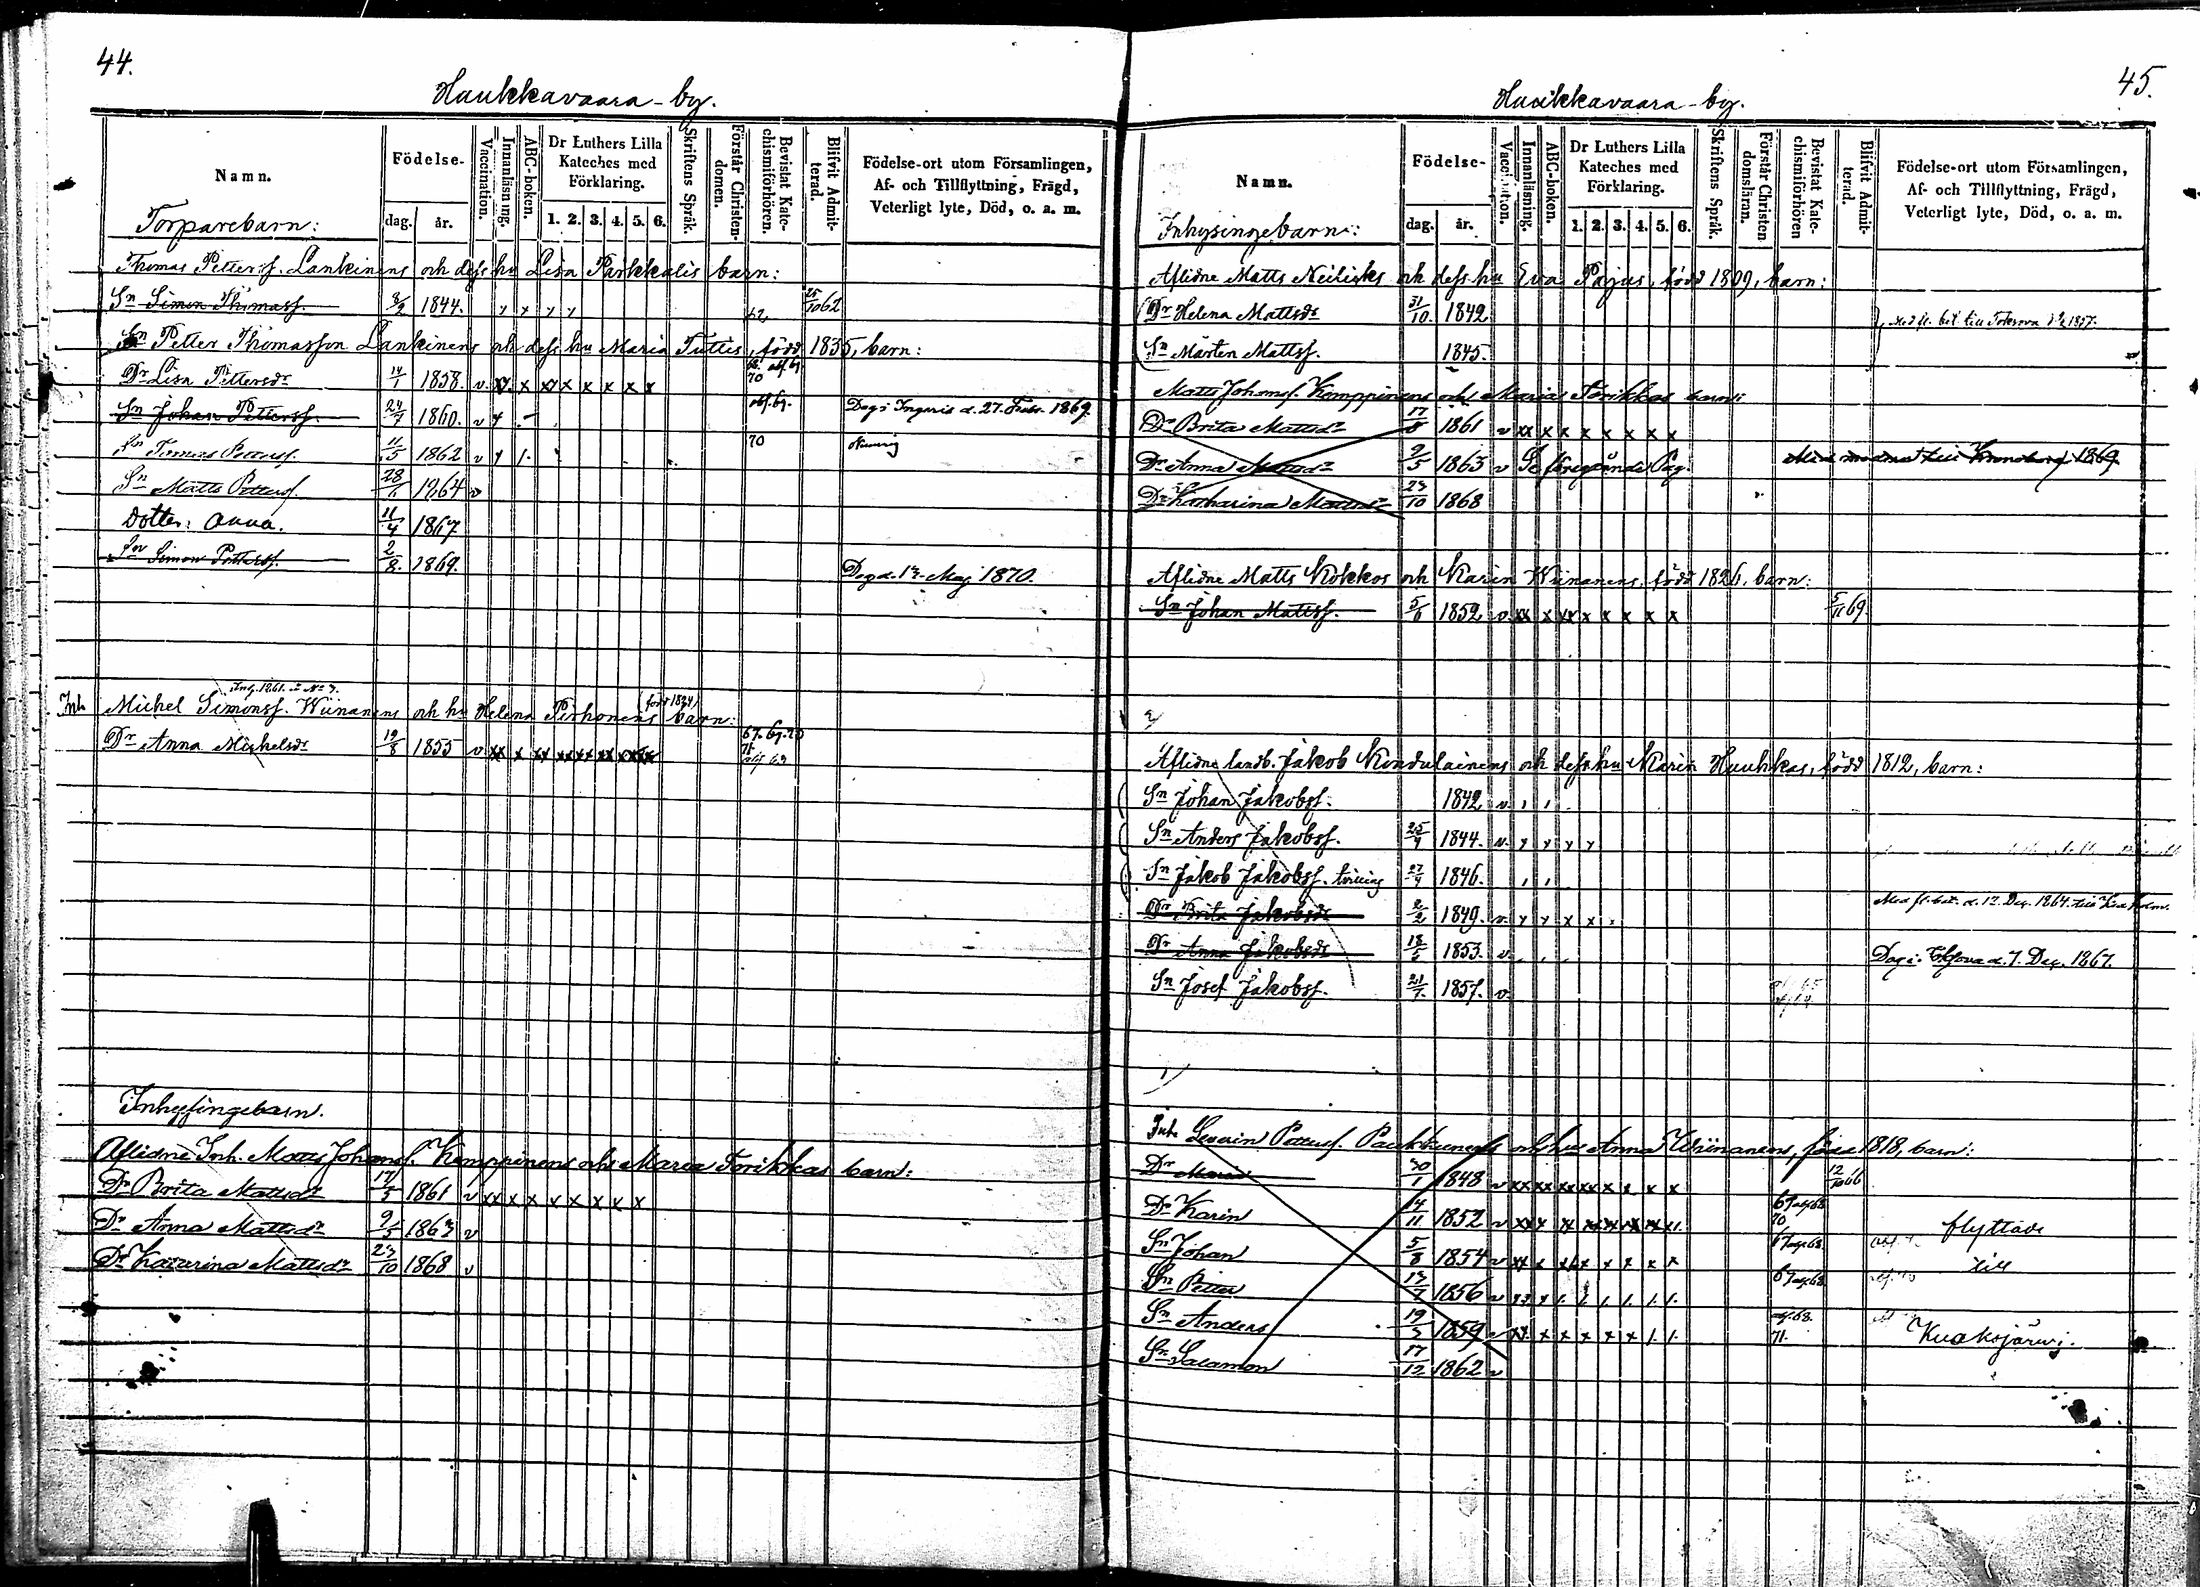 44.
Huukkavaara-by.
Namn.
Födelse-
dag.
år.
Vaccination.
Innanläsning.
ABC-boken.
Dr Luthers Lilla Kateches med Förklaring.
1. 2. 3. 4. 5. 6.
Skriftens Språk.
Förstår Christen-domen.
Bevistat Kate-chismiförhören.
Blifvit Admit-terad.
Födelse-ort utom Församlingen,
Af- och Tillflyttning, Frägd,
Veterligt lyte, Död, o. a. m.
Torparebarn:
Thomas Petterss. Lankinens och dess hu Lisa Parkkalis barn:
Sn Simon Thomass. 8/2 1844. 62 25/10 62
Sn Petter Thomasson Lankinens och dess hu Maria Tuttis, född 1835, barn:
Dr Lisa Pettersdr 14/1 1858. v xx x xx x x x x x 70
Sn Johan Petterss. 24/7 1860. v Dog i Ingeris d. 27. Febr. 1869.
Sn Tomas Petterss. 11/5 1862 v 70
Sn Matts Petterss. 28/1 1864 v
Dotter: Anna. 11/4 1867
Sn Simon Petterss. 2/8 1869. Dog d. 13. Maj 1870.
Inh. Michel Simonss. Wiinanens och hu Helena Pirhonens (född 1824) barn:
Dr Anna Michelsdr 19/8 1855 v xx x xx xx xx xx xx xx
Inhysingebarn.
Aflidne Inh. Matts Johanss. Kemppinens och Maria Torikkas barn:
Dr Brita Mattsdr 17/5 1861 v xx x x x x x x x
Dr Anna Mattsdr 9/5 1863 v
Dr Katarina Mattsdr 23/10 1868 v
45.
Huukkavaara-by.
Namn.
Födelse-
dag.
år.
Vaccination.
Innanläsning.
ABC-boken.
Dr Luthers Lilla Kateches med Förklaring.
1. 2. 3. 4. 5. 6.
Skriftens Språk.
Förstår Christen domsläran.
Bevistat Kate-chismiförhören
Blifvit Admit-terad.
Födelse-ort utom Församlingen,
Af- och Tillflyttning, Frägd,
Veterligt lyte, Död, o. a. m.
Inhysingebarn:
Aflidne Matts och dess hu Eva Pajus, född 1809, barn:
Dr Helena Mattsdr 31/10. 1842
Sn Mårten Mattss. 1845.
Matts Johanss. Kemppinens och Maria Torikkas barn:
Dr Brita Mattsdr 17/5 1861 v xx x x x x x x x
Dr Anna Mattsdr 9/5 1863 v Se föregående Pag.
Dr Katharina Mattsdr 23/10 1868
Aflidne Matts Kokkos och Karin Wiinanens, född 1826, barn:
Sn Johan Mattss. 5/6 1852 v xx x xx x x x x x 5/11 69.
2/
Aflidne landb. Jakob Kondulainens och dess hu Karin Huuhkas, född 1812, barn:
Sn Johan Jakobss. 1842 v
Sn Anders Jakobss. 25/9 1844. v
Sn Jakob Jakobss. tvilling 27/4 1846.
Dr Brita Jakobsdr 2/2 1849. v Med fl.bet. d. 12. Dec. 1864.
Dr Anna Jakobsdr 18/5 1853. v Dog i d. 7. Dec. 1867.
Sn Josef Jakobss. 21/7. 1857. v
1/
Inh. Petterss. Paukkunens och hu Anna Wiinanens, född 1818, barn:
Dr Maria 30/1 1848 v xx xx xx xx x x x x 12/10 66
Dr Karin 4/11 1852 v 70 flyttade
Sn Johan 5/8 1854 v till
Sn Petter 13/7 1856 v
Sn Anders 19/3 1859 v 71. Kuoksjärwi.
Sn Salamon 17/12 1862 v